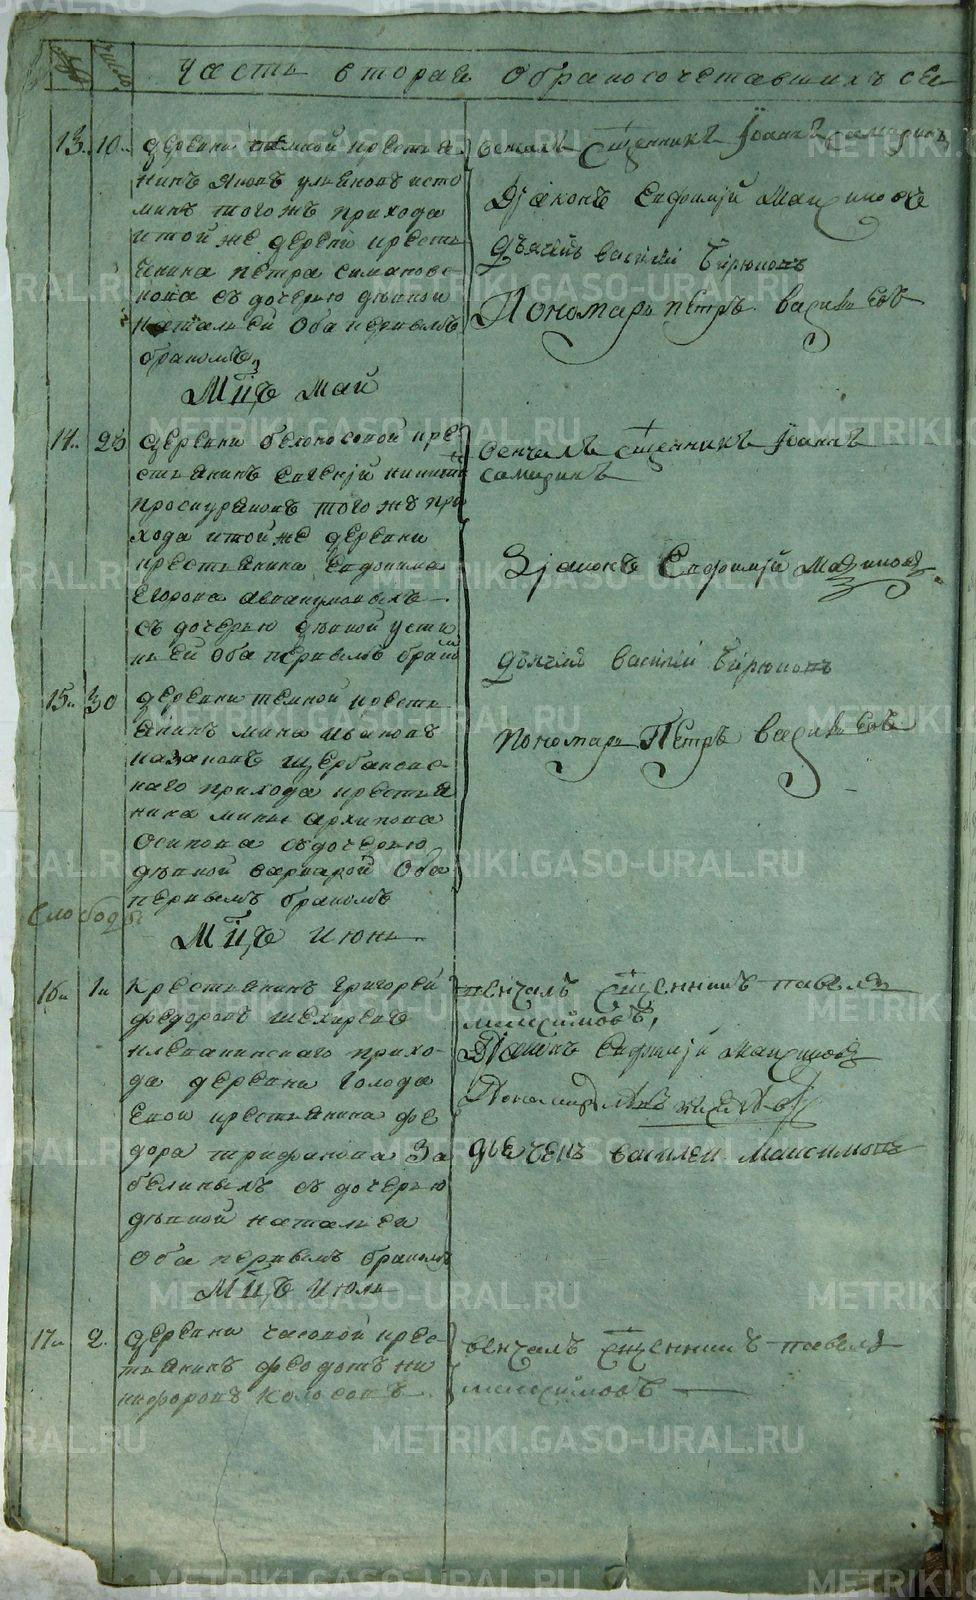 Часть вторая обраносочетавшихъ ся
число
13. 10. деревни темной крестья
нинъ Яковъ ульяновъ исто
минъ того жъ прихода
итой же деревни кресть
янина петра симановс
кова съ дочерью девкой
натальей Оба первымъ
бракомъ,
венчалъ Сщенникъ Іоаннъ самаринъ
Дїаконъ Евфимїй Маѯимовъ
Дьячикъ василїй Бирюковъ
Пономарь петръ васильевъ
Мцъ Май
14. 23 деревни белоносовой кре
стьянинъ Евгенїй никитинъ
проскуряковъ того жъ при
хода итой же деревни
крестьянина Евдокима
Егорова аввакумовыхъ
съ дочерью девкой усти
ньей Оба первымъ браком
венчалъ Сщенникъ Іоаннъ
самаринъ
Дїаконъ Евфимїй Маѯимовъ
Дьячикъ василїй Бирюковъ
пономарь Петръ васильевъ
15. 30 деревни темной кресть
янинъ мина ивановъ
казаковъ Щербаковс
каго прихода крестья
нина мины архипова
Осипова съдочерью
девкой варварой Оба
первымъ бракомъ
Мцъ Июнь
слободы
16. 1. Крестьянинъ григорей
федоровъ шехиревъ
клевакинскаго прихо-
да деревни Голода
евой крестьянина фе
дора трифанова За
белиныхъ съ дочерью
девкой натальей
Оба первымъ бракомъ
венчалъ Сщенникъ павелъ
маѯимовъ,
Дїаконъ Евфимїй Маѯимовъ
Пономарь
дьяченъ василеи Максимовъ
Мцъ Июль
17. 2. деревни часовой крес-
тьянинъ феодотъ ни
кифоровъ колосовъ
венчалъ Сщенникъ павелъ
маѯимовъ